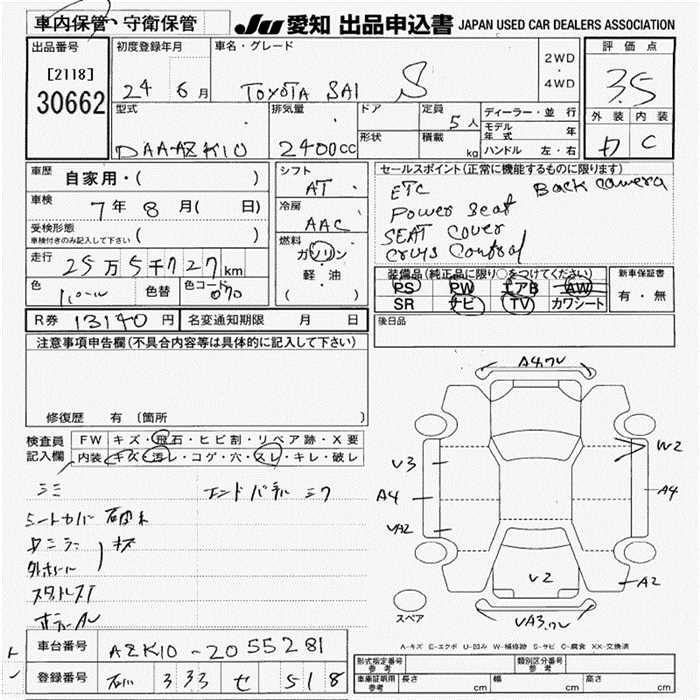 車内保管・守衛保管
JU 愛知 出品申込書 JAPAN USED CAR DEALERS ASSOCIATION
出品番号 初度登録年月 車名・グレード 評価点
[2118] 2WD
30662 24 6月 TOYOTA SAI S 4WD 3.5
型式 排気量 ドア 定員 5人 ディーラー・並行 外装 内装
形状 積載 モデル年式 年
DAA-AZK10 2400cc kg ハンドル 左・右 D C
車歴 自家用・( ) シフト セールスポイント(正常に機能するものに限ります)
AT ETC Back camera
車検 7年8月( 日) 冷房 Power Seat
受検形態 AAC SEAT Cover
車検付きのみ記入して下さい ( ) 燃料 Cruys Control
走行 25万5千727km ガソリン 装備品(純正品に限り○をつけてください) 新車保証書
色 パール 色替 色コード 070 軽・油 PS PW エアB AW 有・無
( ) SR ナビ TV カワシート
R券 13140円 名変通知期限 月 日 後日品
注意事項申告欄(不具合内容等は具体的に記入して下さい)
修復歴 有 (箇所
検査員 FW キズ・飛石・ヒビ割・リペア跡・X要
記入欄 内装 キズ・汚レ・コゲ・穴・スレ・キレ・破レ
A4.ワレ
V3
W2
A4
A4
VA2
V2
A2
VA3.ワレ
スペア
シートカバー
A-キズ E-エクボ U-凹み W-補修跡 S-サビ C-腐食 XX-交換済
車台番号 AZK10-2055281
登録番号 333 せ 518
形式指定番号 参考 類別区分番号 参考
車庫証明用 参考 長さ cm 幅 cm 高さ cm